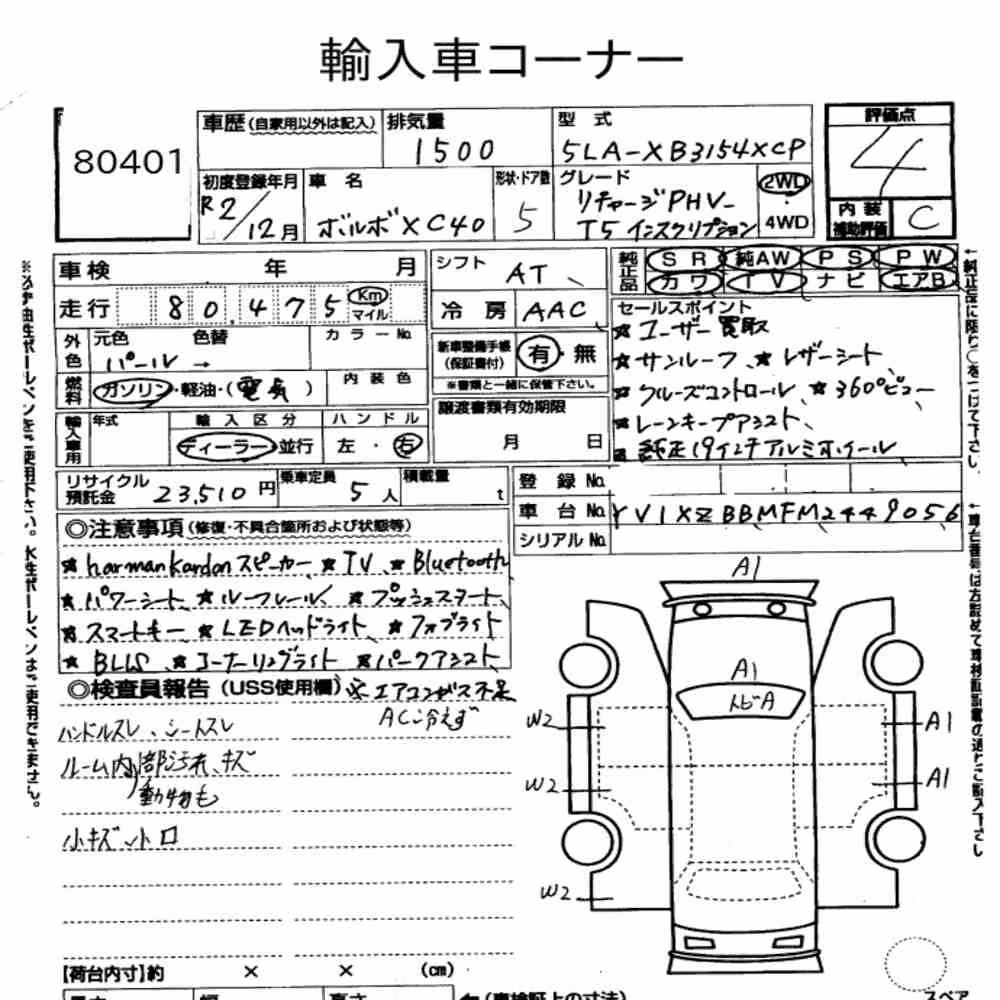 輸入車コーナー
80401
車歴(自家用以外は記入) 排気量 1500 型式 5LA-XB3154XCP 評価点 4
初度登録年月 R2/12月 車名 ボルボXC40 形状・ドア数 5 グレード リチャージPHV T5 インスクリプション 2WD・4WD 内装補助評価 C
車検 年 月 シフト AT 純正品 SR 純AW PS PW
カワ TV ナビ エアB
走行 80.475 Km マイル 冷房 AAC セールスポイント
外色 元色 パール 色替 → カラーNo. 新車整備手帳(保証書付) 有・無
※書類と一緒に保管下さい。
★ユーザー買取
★サンルーフ、★レザーシート
★クルーズコントロール ★360°ビュー
★レーンキープアシスト、
純正19インチアルミホイール
燃料 ガソリン・軽油・(電気) 内装色 譲渡書類有効期限 月 日
輸入車用 年式 輸入区分 ディーラー・並行 ハンドル 左・右
リサイクル預託金 23,510円 乗車定員 5人 積載量 t
登録No.
車台No. YV1XZBBMFM2449056
シリアルNo.
◎注意事項(修復・不具合箇所および状態等)
★harman kardonスピーカー ★TV、★Bluetooth
★パワーシート、★ルーフレール、★プッシュスタート、
★スマートキー ★LEDヘッドライト、★フォグライト
★BLIS ★コーナリングライト ★パークアシスト
◎検査員報告(USS使用欄) ※エアコンガス不足
AC冷えず
ハンドルスレ、シートスレ
ルーム内部汚れ、キズ
動物も
小キズ、小凹
A1
A1
トビA
W2 A1
W2 A1
W2
【荷台内寸】約 × × (cm)
(車検証上の寸法)
スペア
※必ず油性ボールペンをご使用下さい。水性ボールペンはご使用できません。